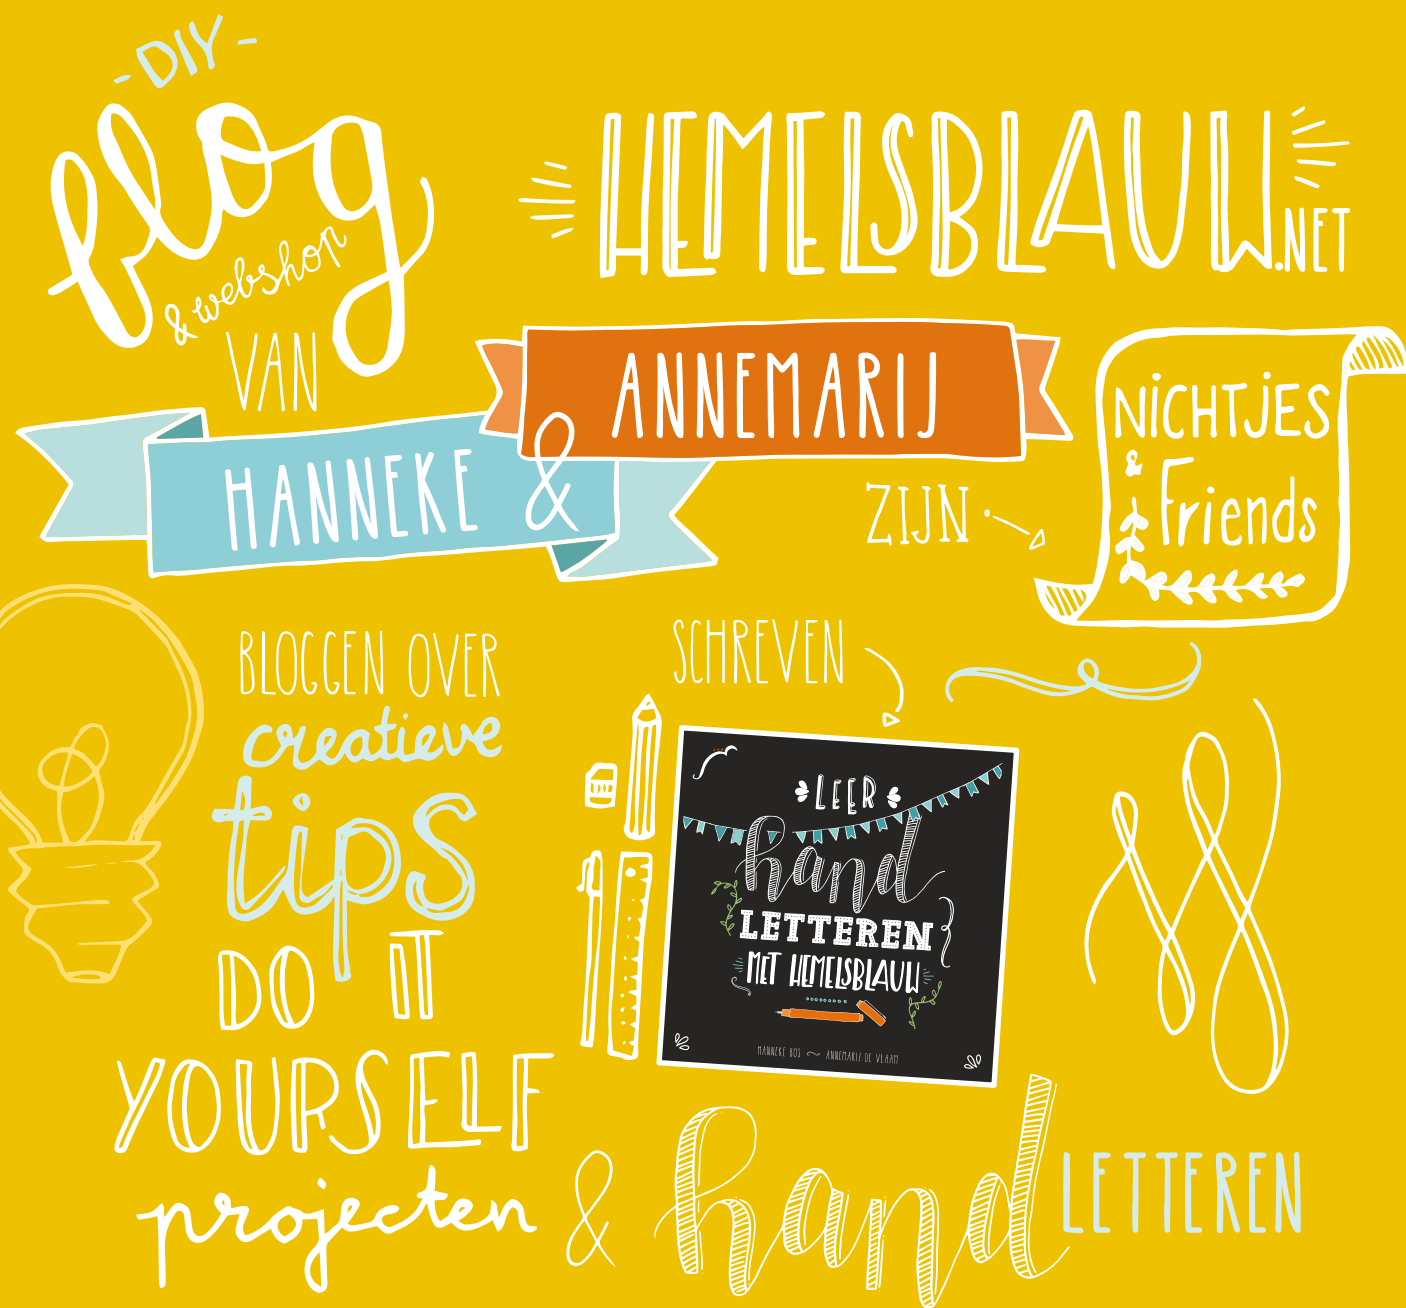 -DIY-
blog
& webshop
VAN
HEMELSBLAUW.NET
HANNEKE &
ANNEMARIJ
ZIJN
NICHTJES
&
Friends
BLOGGEN OVER
creatieve
tips
DO IT
YOURSELF
projecten
&
SCHREVEN
LEER
hand
LETTEREN
MET HEMELSBLAUW
HANNEKE BOS ~ ANNEMARIJ DE VLAAM
hand
LETTEREN